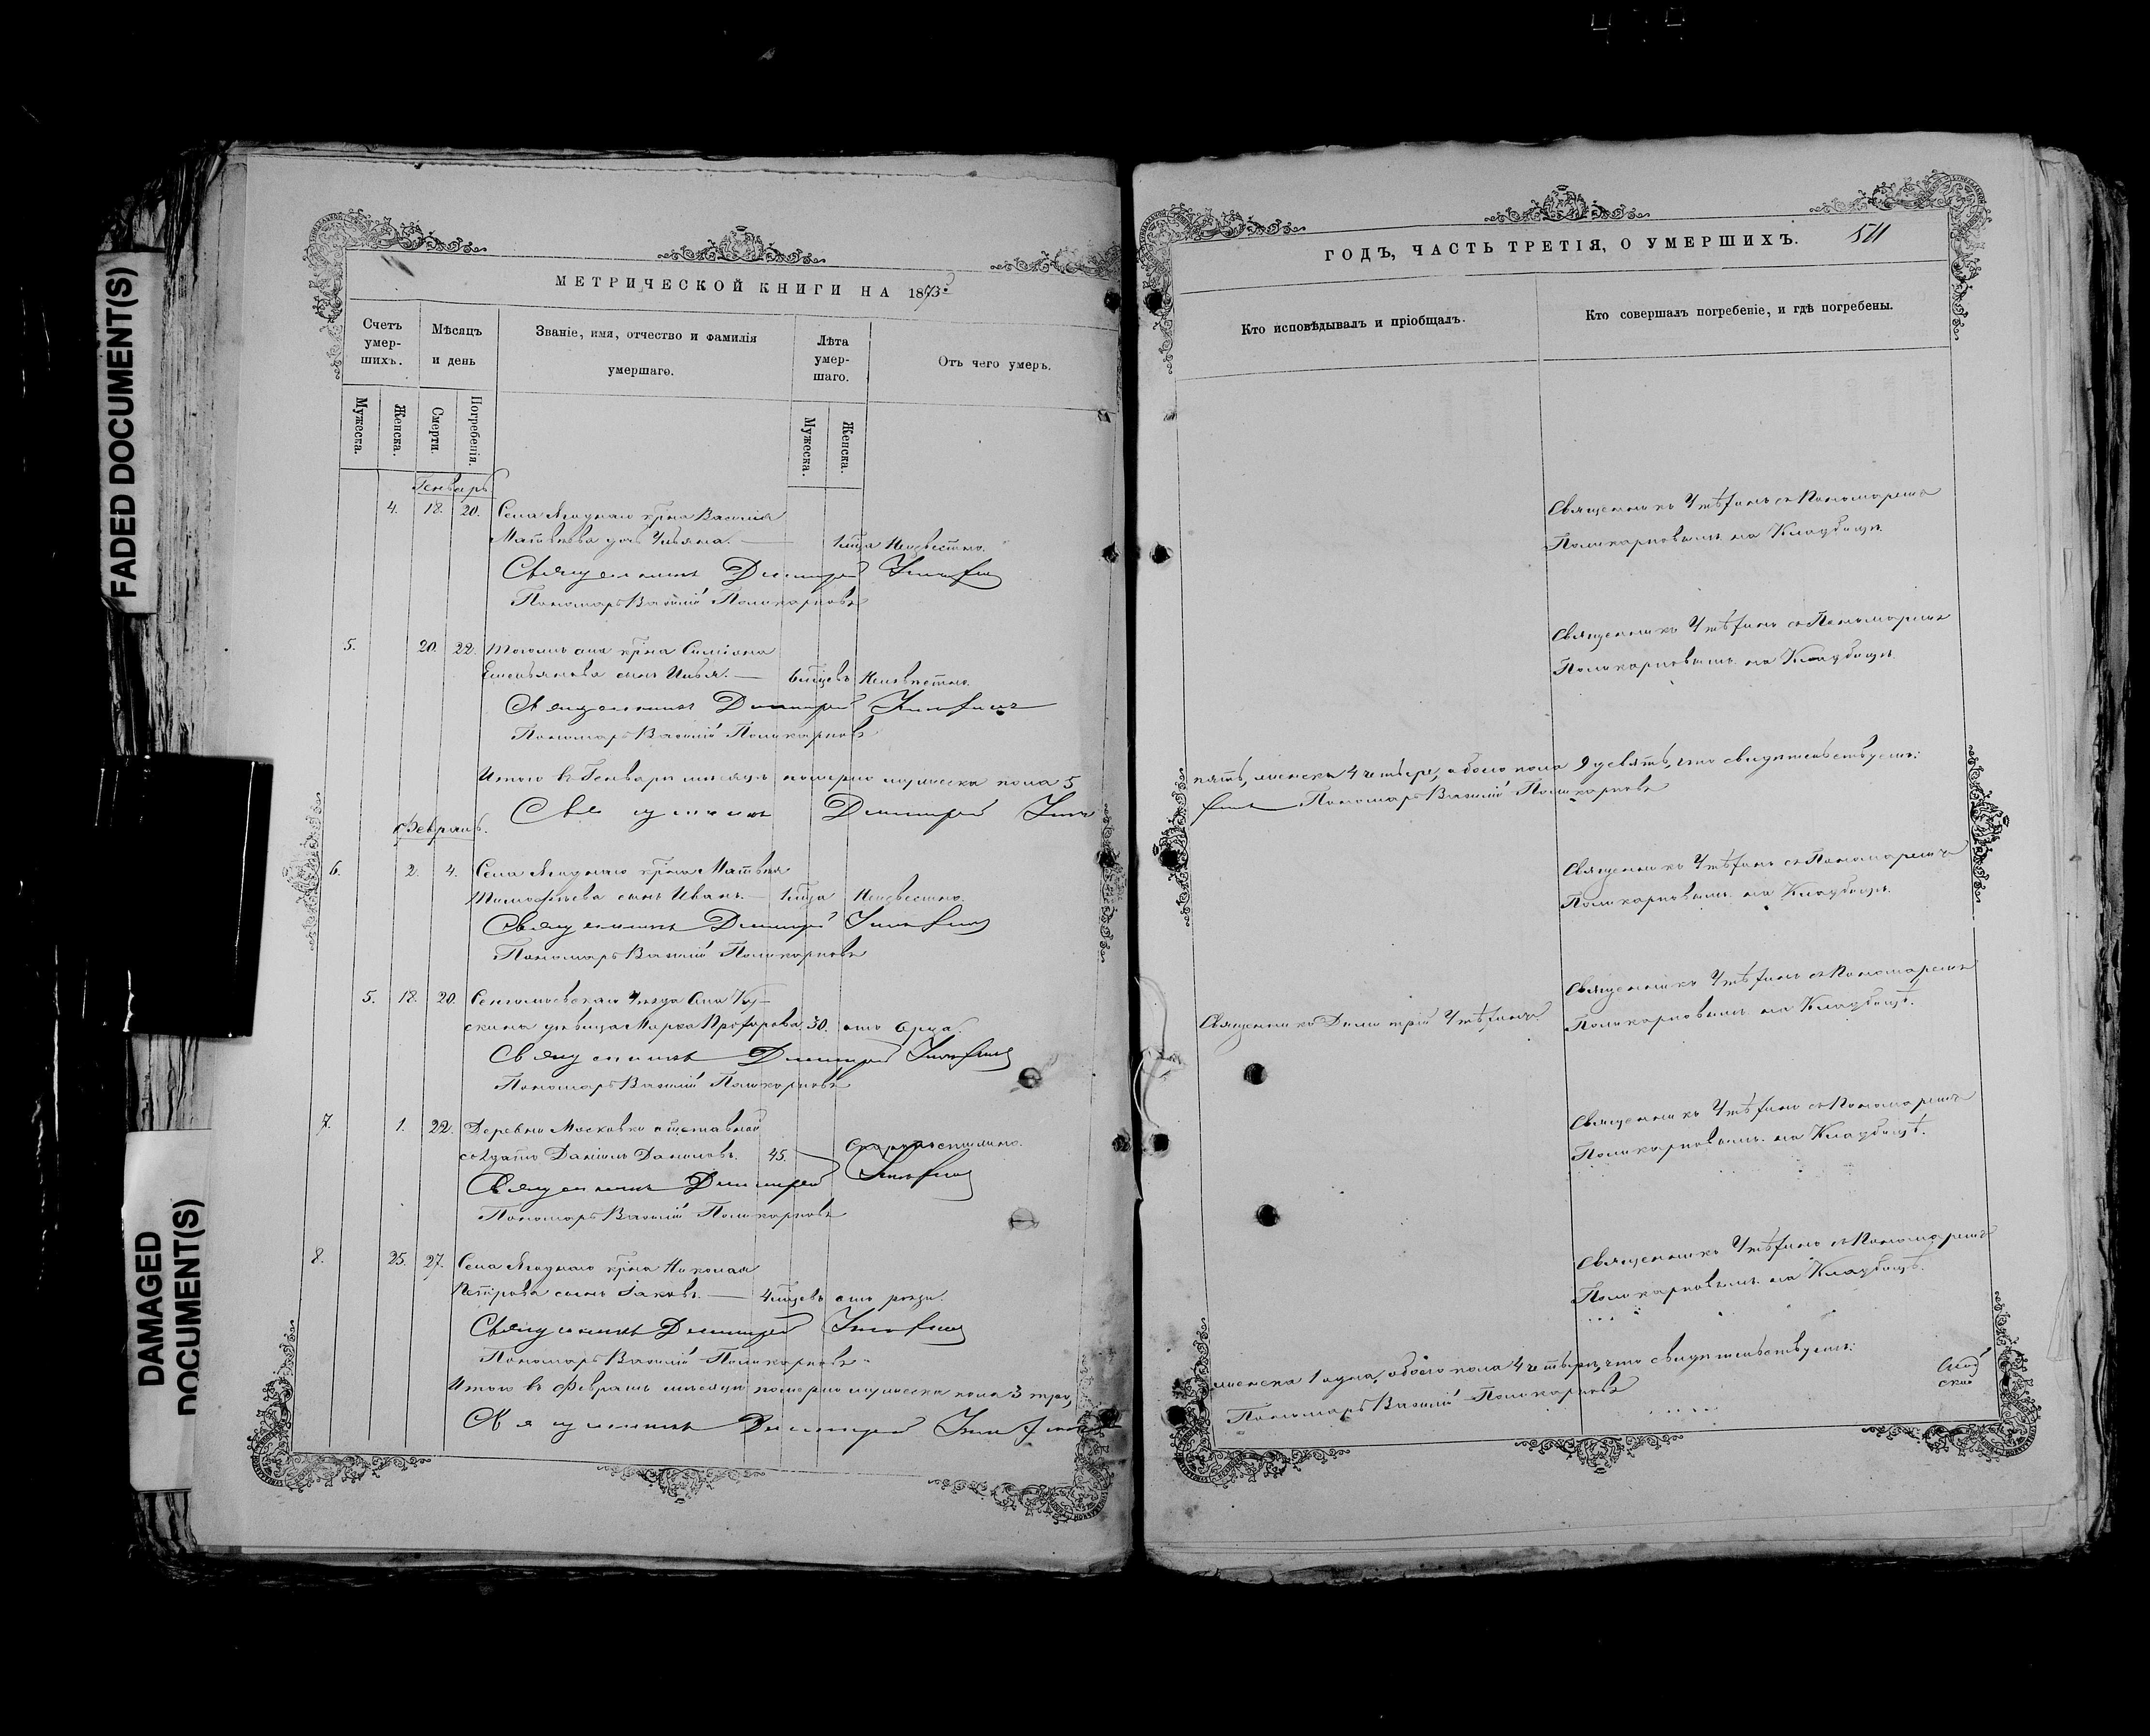 FADED DOCUMENT(S)
DAMAGED
DOCUMENT(S)
МЕТРИЧЕСКОЙ КНИГИ НА 1873
Счетъ умершихъ.
Мѣсяцъ и день
Званіе, имя, отчество и фамилія
умершаго.
Лѣта умершаго.
Отъ чего умеръ.
Мужеска.
Женска.
Смерти.
Погребенія.
Мужеска.
Женска.
Генварь
4. 18. 20. Села Ягоднаго крна Василія
Матвѣева дочь Ульяна. — 1 мца Неизвестно.
Священникъ Димитрій
Пономарь Василій Поликарповъ
5. 20. 22. Того же села крна Симеона
Емельянова сынъ Илья. — 6 мцевъ Неизвѣстно.
Священникъ Димитрій
Пономарь Василій Поликарповъ
Итого въ Генварѣ мѣсяцѣ померло мужеска пола 5
Священникъ Димитрій
Февраль.
6. 2. 4. Села Ягоднаго крна Матвѣя
Тимофѣева сынъ Иванъ. — 1 мца Неизвестно.
Священникъ Димитрій
Пономарь Василій Поликарповъ
5. 18. 20. уѣзда села
дѣвица Марѳа 30.
Священникъ Димитрій
Пономарь Василій Поликарповъ
7. 1. 22. Деревни Московки отставной
солдатъ Даніилъ Даниловъ. 45.
Священникъ Димитрій
Пономарь Василій Поликарповъ
8. 25. 27. Села Ягоднаго крна Николая
Петрова сынъ Іаковъ. — 4 мцевъ отъ
Священникъ Димитрій
Пономарь Василій Поликарповъ
Итого въ Февралѣ мѣсяцѣ померло мужеска пола 3 три,
Священникъ Димитрій
ГОДЪ, ЧАСТЬ ТРЕТІЯ, О УМЕРШИХЪ. 511
Кто исповѣдывалъ и пріобщалъ.
Кто совершалъ погребеніе, и гдѣ погребены.
Священникъ съ Пономаремъ
Поликарповымъ на Кладбищѣ
Священникъ съ Пономаремъ
Поликарповымъ на Кладбищѣ
пять, женска 4 четыре, обоего пола 9 девять, что свидѣтельствуемъ:
Пономарь Василій Поликарповъ
Священникъ съ Пономаремъ
Поликарповымъ на Кладбищѣ.
Священникъ съ Пономаремъ
Священникъ Димитрій
Поликарповымъ на Кладбищѣ.
Священникъ съ Пономаремъ
Поликарповымъ на Кладбищѣ.
Священникъ съ Пономаремъ
Поликарповымъ на Кладбищѣ.
женска 1 одна, обоего пола 4 четыре, что свидѣтельствуемъ:
Пономарь Василій Поликарповъ